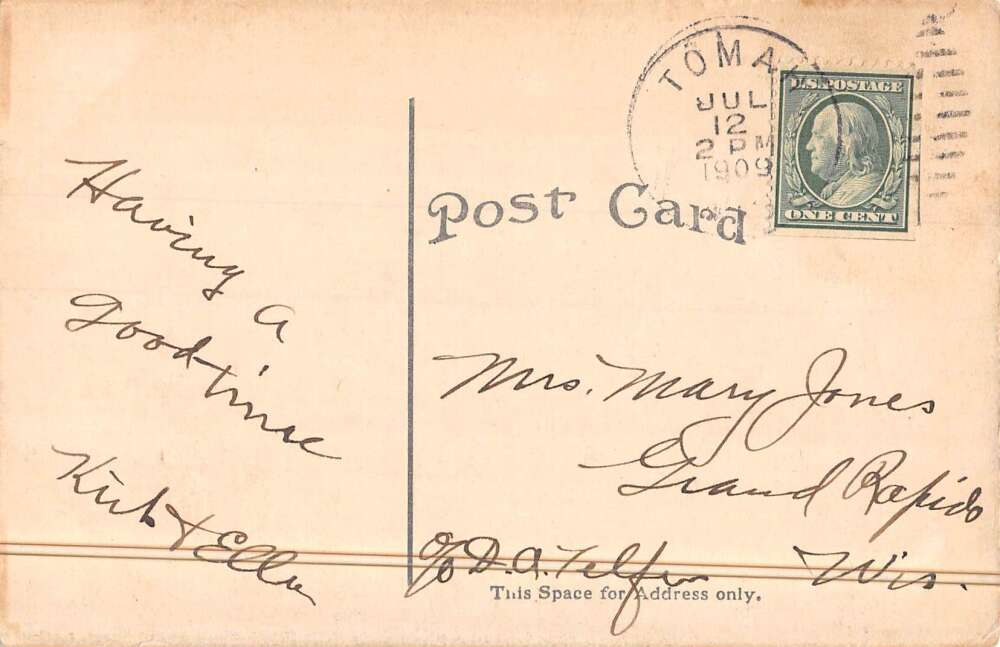 TOMAH
JUL
12
2 PM
1909
U.S. POSTAGE
ONE CENT
Post Card
Having a
good time
Kirk & Ella
Mrs. Mary Jones
Grand Rapids
Wis.
c/o D. A. Telfer
This Space for Address only.